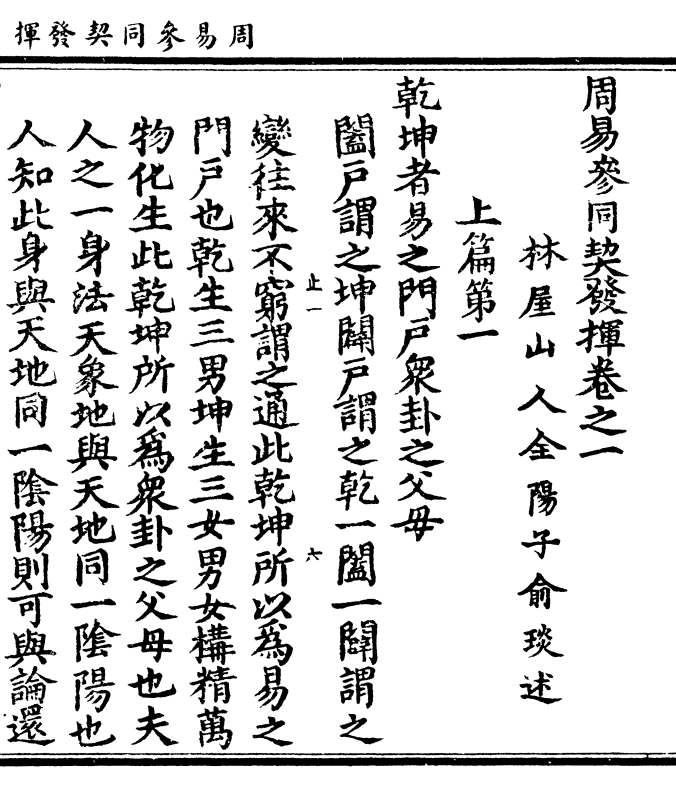 周易參同契發揮
周易參同契發揮卷之一
林屋山人全陽子俞琰述
上篇第一
乾坤者易之門戶衆卦之父母
闔戶謂之坤闢戶謂之乾一闔一闢謂之
止一 六
變往來不窮謂之通此乾坤所以爲易之
門戶也乾生三男坤生三女男女構精萬
物化生此乾坤所以爲衆卦之父母也夫
人之一身法天象地與天地同一陰陽也
人知此身與天地同一陰陽則可與論還